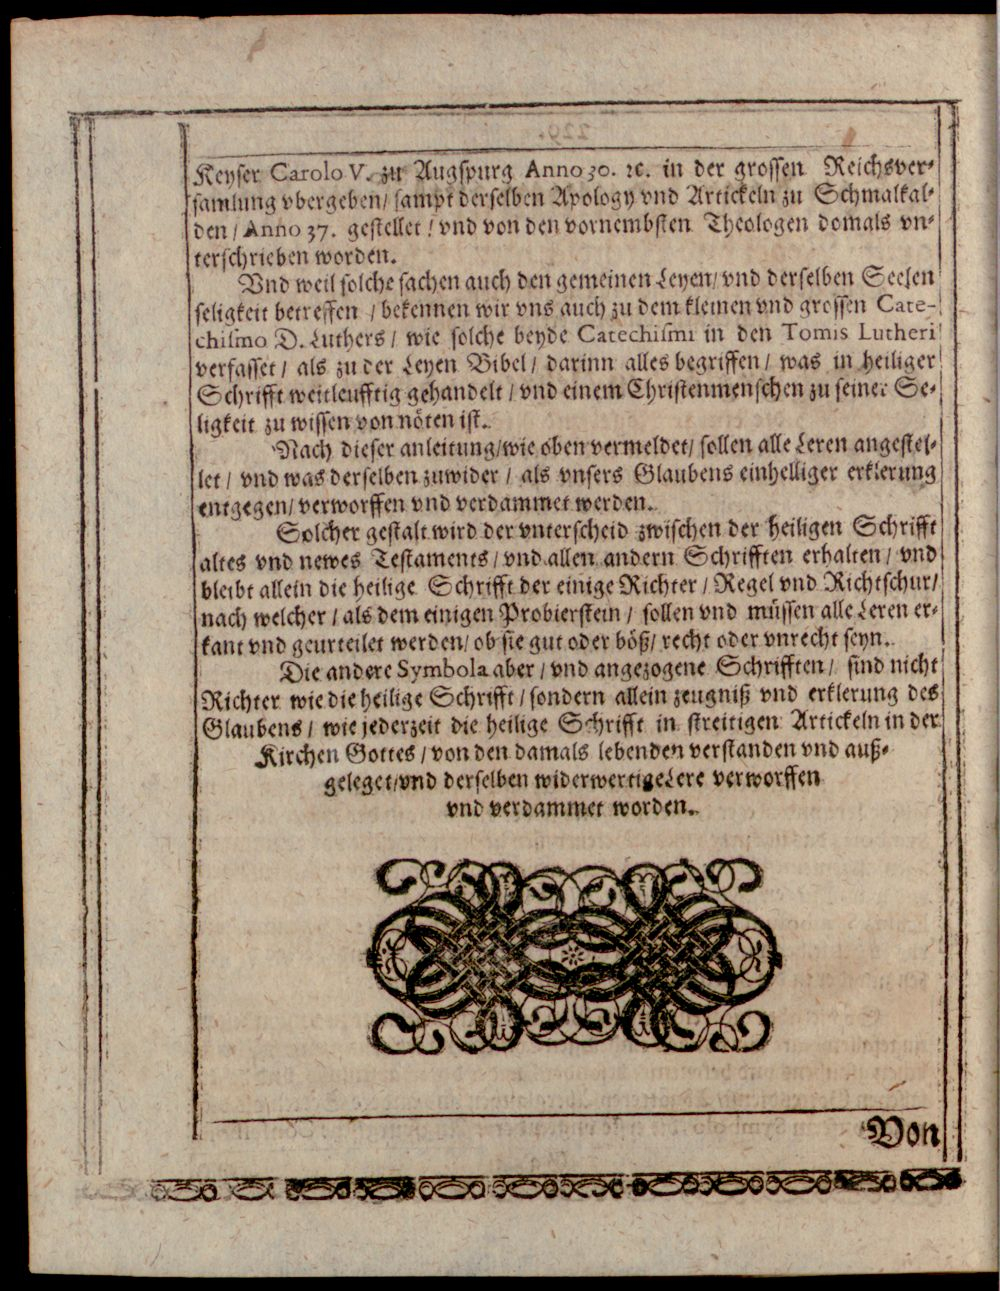 Keyser Carolo V. zu Augspurg Anno 30. ꝛc. in der grossen Reichsver-
samlung vbergeben/ sampt derselben Apology vnd Artickeln zu Schmalkal-
den / Anno 37. gestellet / vnd von den vornembsten Theologen domals vn-
terschrieben worden.
Vnd weil solche sachen auch den gemeinen Leyen/ vnd derselben Seelen
seligkeit betreffen / bekennen wir vns auch zu dem kleinen vnd grossen Cate-
chismo D. Luthers / wie solche beyde Catechismi in den Tomis Lutheri
verfasset / als zu der Leyen Bibel / darinn alles begriffen / was in heiliger
Schrifft weitleufftig gehandelt / vnd einem Christenmenschen zu seiner Se-
ligkeit zu wissen von nöten ist.
Nach dieser anleitung/ wie oben vermeldet/ sollen alle Leren angestel-
let / vnd was derselben zuwider / als vnsers Glaubens einhelliger erklerung
entgegen/ verworffen vnd verdammet werden.
Solcher gestalt wird der vnterscheid zwischen der heiligen Schrifft
altes vnd newes Testaments / vnd allen andern Schrifften erhalten / vnd
bleibt allein die heilige Schrifft der einige Richter / Regel vnd Richtschur/
nach welcher / als dem einigen Probierstein / sollen vnd müssen alle Leren er-
kant vnd geurteilet werden/ ob sie gut oder böß/ recht oder vnrecht seyn.
Die andere Symbola aber / vnd angezogene Schrifften / sind nicht
Richter wie die heilige Schrifft / sondern allein zeugniß vnd erklerung des
Glaubens / wie jederzeit die heilige Schrifft in streitigen Artickeln in der
Kirchen Gottes / von den damals lebenden verstanden vnd auß-
geleget/ vnd derselben widerwertige Lere verworffen
vnd verdammet worden.
Von